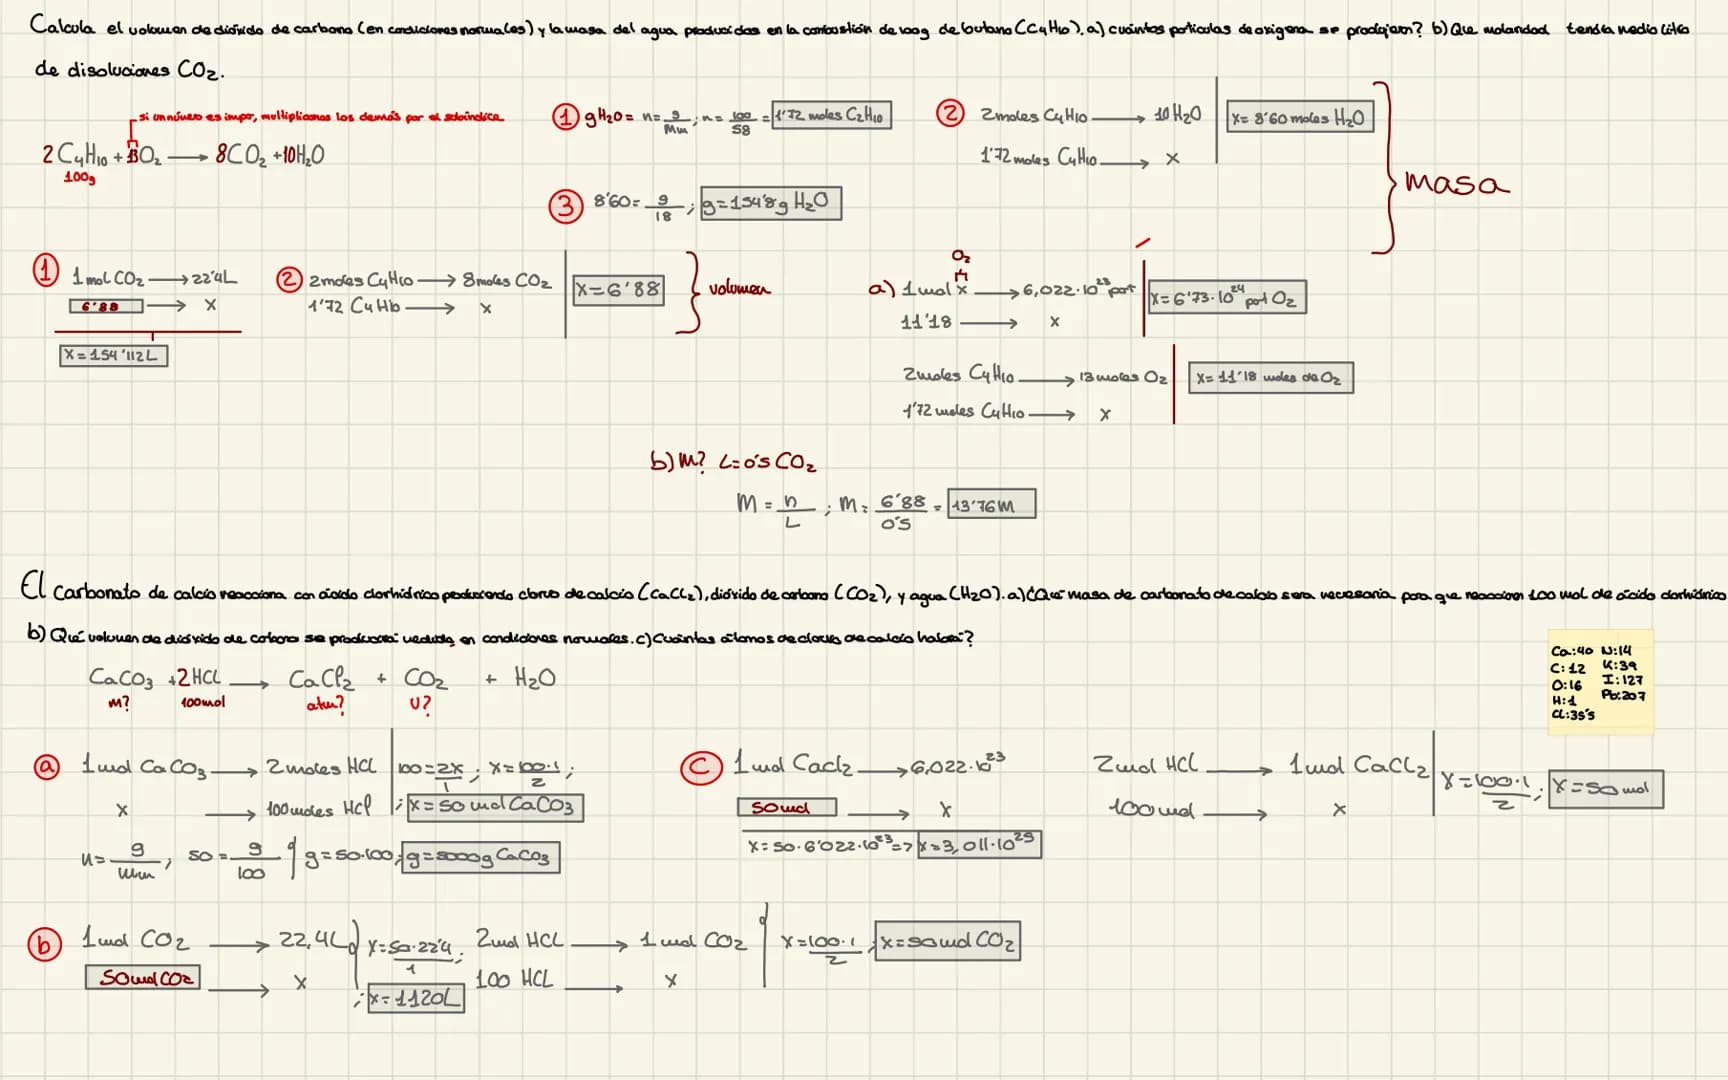 Calcula el volumen de dióxido de carbono (en condiciones normales) y la masa del agua producidas en la combustión de 100g de butano (C4H10). a) cuántas partículas de oxígeno se produjeron? b) Que molaridad tendía medio litro
de disoluciones CO2.
si un número es impar, multiplicamos los demás por el subíndice
2 C4H10 + 13O2 → 8CO2 + 10H2O
100g
① gH2O = n = g/Mm ; n = 100/58 = 1'72 moles C2H10
② 2 moles C4H10 → 10 H2O
1'72 moles C4H10 → x
x = 8'60 moles H2O
③ 8'60 = g/18 ; g = 154'8g H2O
masa
① 1 mol CO2 → 22'4L
6'88 → x
x = 154'112L
② 2 moles C4H10 → 8 moles CO2
1'72 C4H10 → x
x = 6'88
volumen
O2
a) 1 mol x → 6,022·10^23 part
11'18 → x
x = 6'73·10^24 part O2
2 moles C4H10 → 13 moles O2
1'72 moles C4H10 → x
x = 11'18 moles de O2
b) M? L = 0'5 CO2
M = n/L ; M = 6'88/0'5 = 13'76M
El Carbonato de calcio reacciona con ácido clorhídrico produciendo cloruro de calcio (CaCl2), dióxido de carbono (CO2), y agua (H2O). a) ¿Qué masa de carbonato de calcio sera necesaria para que reaccionen 100 mol de ácido clorhídrico
b) Qué volumen de dióxido de carbono se producirá en condiciones normales. c) Cuántas átomos de cloruro de calcio habrá?
CaCO3 + 2HCL → CaCl2 + CO2 + H2O
m? 100mol atm? V?
Ca:40 N:14
C:12 K:39
O:16 I:127
H:1 Pb:207
Cl:35'5
ⓐ 1 mol CaCO3 → 2 moles HCL
x → 100 moles HCl
100 = 2x/1 ; x = 100·1/2 ;
; x = 50 mol CaCO3
n = g/Mm , 50 = g/100 g = 50·100; g = 5000g CaCO3
ⓒ 1 mol CaCl2 → 6,022·10^23
50 mol → x
x = 50·6'022·10^23 => x = 3,011·10^25
2 mol HCL → 1 mol CaCL2
100 mol → x
x = 100·1/2 ; x = 50 mol
ⓑ 1 mol CO2 → 22,4L
50 mol CO2 → x
x = 50·22'4/1 ;
; x = 1120L
2 mol HCL → 1 mol CO2
100 HCL → x
x = 100·1/2 ; x = 50 mol CO2